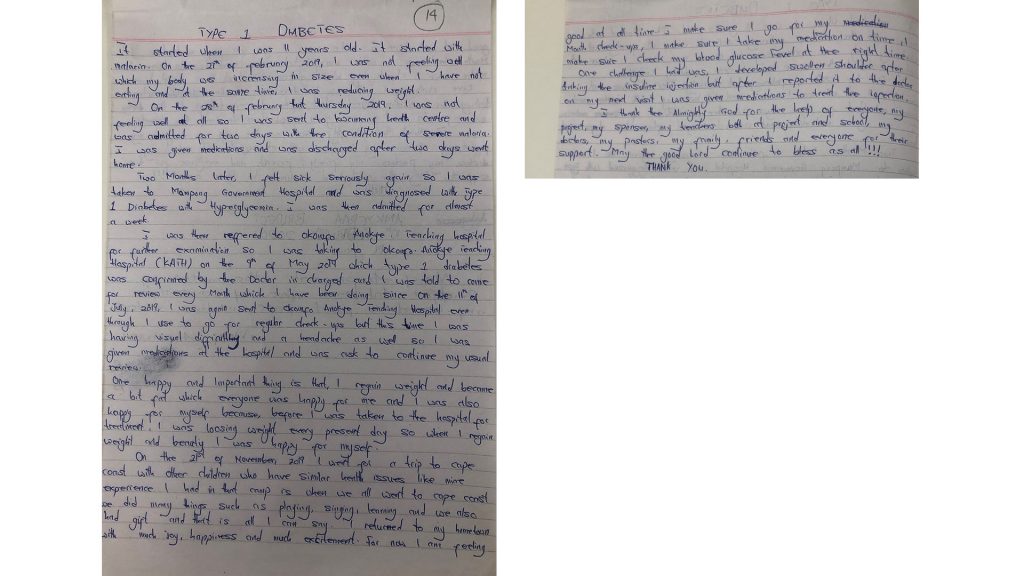 14
TYPE 1 DIABETES
It started when I was 11 years old. It started with
malaria. On the 21st of february 2019, I was not feeling well
which my body was increasing in size even when I have not
eating and at the same time, I was reducing weight.
On the 28th of february that thursday 2019, I was not
feeling well at all so I was sent to kocuming health centre and
was admitted for two days with the condition of severe malaria.
I was given medications and was discharged after two days went
home.
Two Months later, I felt sick seriously again so I was
taken to Mampong Government Hospital and was diagnosed with Type
1 Diabetes with Hyperglycemia. I was then admitted for almost
a week.
I was then reffered to okomfo Anokye Teaching hospital
for further examination so I was taking to okomfo Anokye Teaching
Hospital (KATH) on the 9th of May 2019 which type 1 diabetes
was confirmed by the Doctor in charged and I was told to come
for review every Month which I have been doing since On the 11th of
July, 2019, I was again sent to okomfo Anokye Teaching Hospital even
through I use to go for regular check-ups but this time I was
having visual difficulty and a headache as well so I was
given medications at the hospital and was ask to continue my usual
review.
One happy and important thing is that, I regain weight and became
a bit fat which everyone was happy for me and I was also
happy for myself because, before I was taken to the hospital for
treatment I was loosing weight every present day so when I regain
weight and beauty I was happy for myself.
On the 21st of November, 2019 I went for a trip to cape
coast with other children who have similar health issues like mine
experience I had in that camp is when we all went to cape coast
we did many things such as playing, singing, learning and we also
had gift and that is all I can say. I returned to my hometown
with much joy, happiness and much excitement. For now I am feeling
good at all time. I make sure I go for my
Month check-ups, I make sure I take my medication on time, I
make sure I check my blood glucose level at the right time
One challenge I had was, I developed swollen shoulder after
taking the insuline injection but after I reported it to the doctor
on my next visit I was given medications to treat the infection.
I thank the Almighty God for the help of everyone, my
project, my sponser, my teachers both at project and school, my
doctors, my pastors, my family, friends and everyone for their
support. May the good Lord continue to bless as all!!!
THANK YOU.